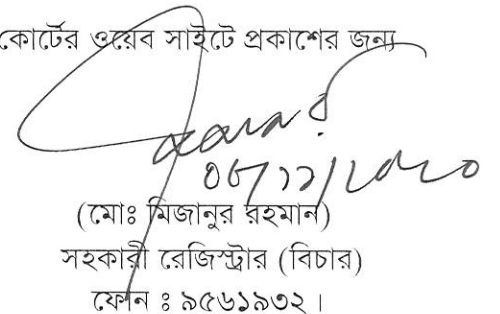 কোর্টের ওয়েব সাইটে প্রকাশের জন্য
(মোঃ মিজানুর রহমান)
সহকারী রেজিস্ট্রার (বিচার)
ফোন ঃ ৯৫৬১৯৩২ ।